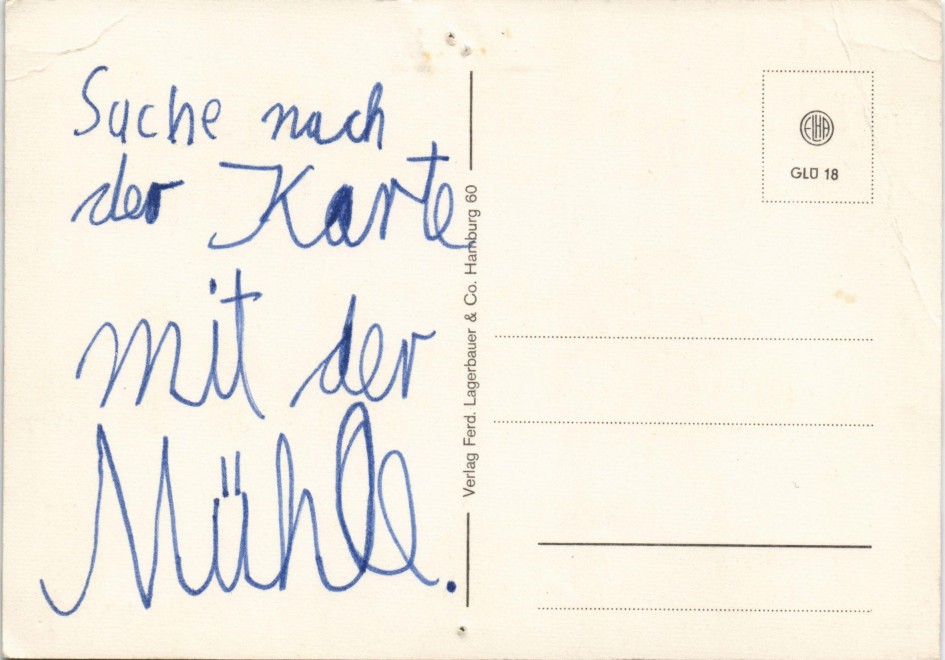 Suche nach
der Karte
mit der
Mühle.
Verlag Ferd. Lagerbauer & Co. Hamburg 60
ELHA
GLÜ 18